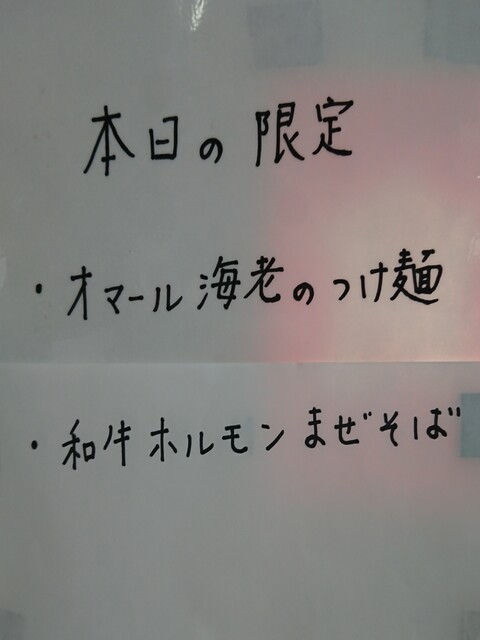 本日の限定
・オマール海老のつけ麺
・和牛ホルモンまぜそば